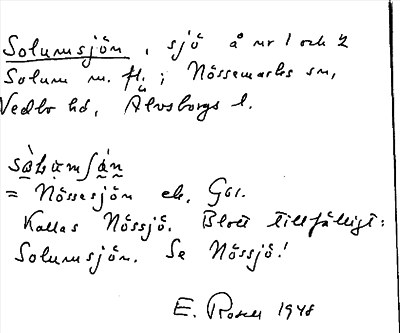 Solumsjön, sjö å nr 1 och 2
Solum m. fl.; Nössemarks sn,
Vedbo hd, Älvsborgs l.
= Nössesjön ek. Gst.
Kallas Nössjö. Blott tillfälligt:
Solumsjön. Se Nössjö!
E. Rosell 1948